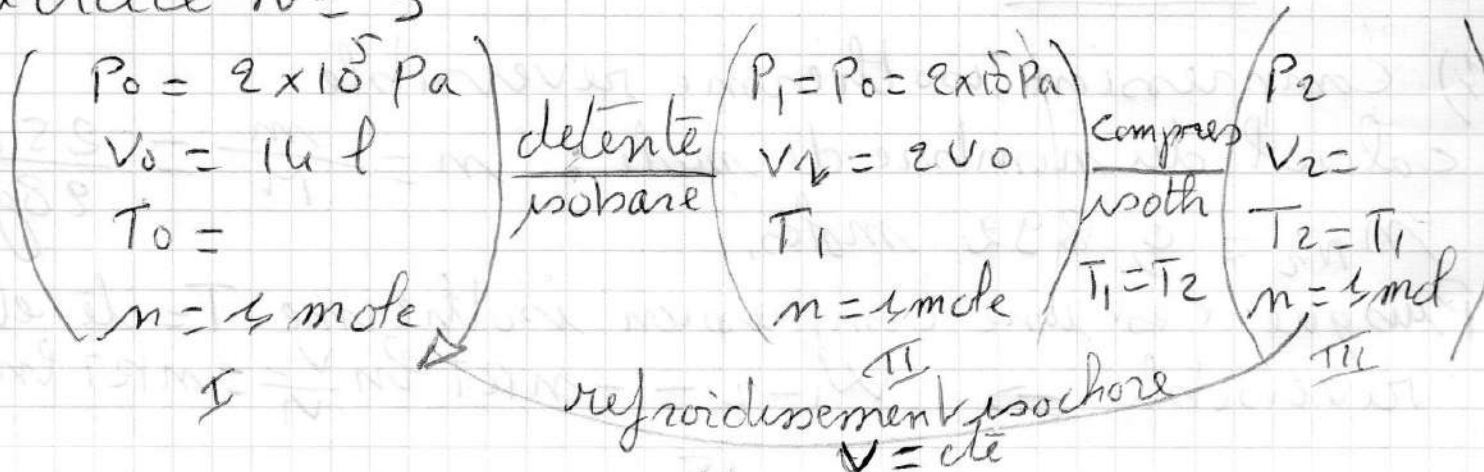 N= 3
P₀ = 2×10⁵ Pa
V₀ = 14 l
T₀ =
n = 1 mole
I
détente
isobare
P₁ = P₀ = 2×10⁵ Pa
V₁ = 2V₀
T₁
n = 1 mole
II
compres
isoth
T₁ = T₂
P₂
V₂ =
T₂ = T₁
n = 1 mol
III
refroidissement isochore
V = cte